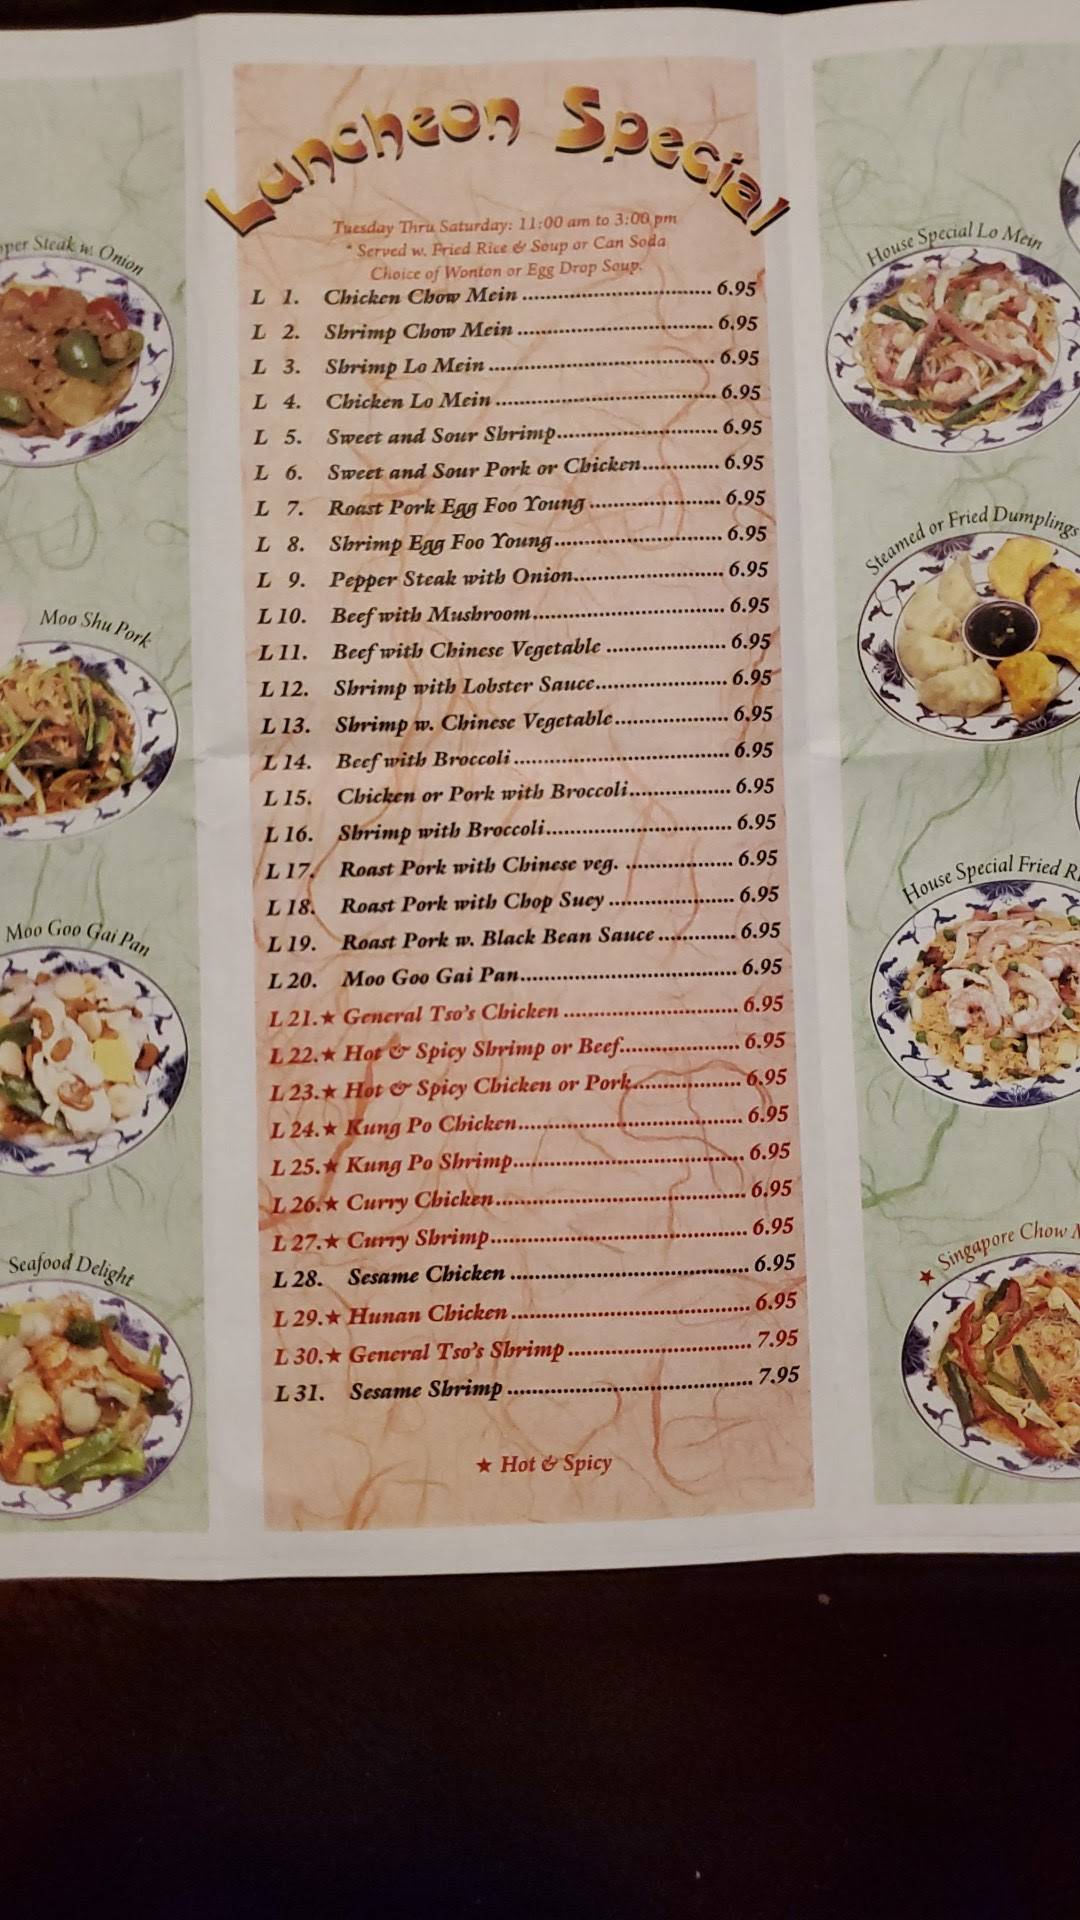 Luncheon Special
Tuesday Thru Saturday: 11:00 am to 3:00 pm
* Served w. Fried Rice & Soup or Can Soda
Choice of Wonton or Egg Drop Soup.
L 1. Chicken Chow Mein ........ 6.95
L 2. Shrimp Chow Mein ........ 6.95
L 3. Shrimp Lo Mein ........ 6.95
L 4. Chicken Lo Mein ........ 6.95
L 5. Sweet and Sour Shrimp ........ 6.95
L 6. Sweet and Sour Pork or Chicken ........ 6.95
L 7. Roast Pork Egg Foo Young ........ 6.95
L 8. Shrimp Egg Foo Young ........ 6.95
L 9. Pepper Steak with Onion ........ 6.95
L 10. Beef with Mushroom ........ 6.95
L 11. Beef with Chinese Vegetable ........ 6.95
L 12. Shrimp with Lobster Sauce ........ 6.95
L 13. Shrimp w. Chinese Vegetable ........ 6.95
L 14. Beef with Broccoli ........ 6.95
L 15. Chicken or Pork with Broccoli ........ 6.95
L 16. Shrimp with Broccoli ........ 6.95
L 17. Roast Pork with Chinese veg. ........ 6.95
L 18. Roast Pork with Chop Suey ........ 6.95
L 19. Roast Pork w. Black Bean Sauce ........ 6.95
L 20. Moo Goo Gai Pan ........ 6.95
L 21.★ General Tso's Chicken ........ 6.95
L 22.★ Hot & Spicy Shrimp or Beef ........ 6.95
L 23.★ Hot & Spicy Chicken or Pork ........ 6.95
L 24.★ Kung Po Chicken ........ 6.95
L 25.★ Kung Po Shrimp ........ 6.95
L 26.★ Curry Chicken ........ 6.95
L 27.★ Curry Shrimp ........ 6.95
L 28. Sesame Chicken ........ 6.95
L 29.★ Hunan Chicken ........ 6.95
L 30.★ General Tso's Shrimp ........ 7.95
L 31. Sesame Shrimp ........ 7.95
★ Hot & Spicy
Steak w. Onion
Moo Shu Pork
Moo Goo Gai Pan
Seafood Delight
House Special Lo Mein
Steamed or Fried Dumplings
House Special Fried
★ Singapore Chow